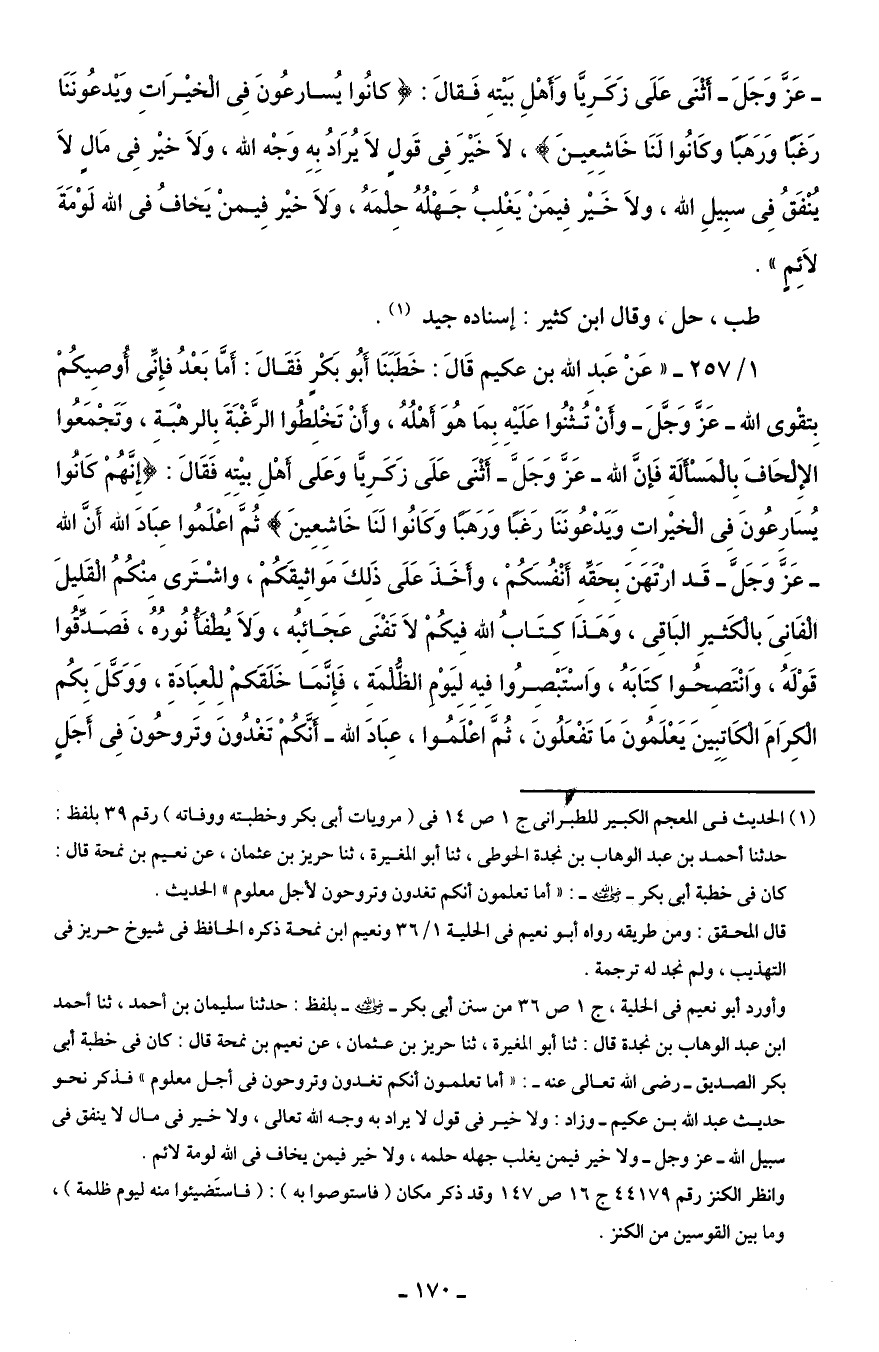 ـ عَزَّ وَجَلَ ـ أَثْنَى عَلَى زَكَـرِيَّا وَأَهْلِ بَيْتِه فَـقالَ : ﴿ كانُوا يُسـارِعُونَ فِى الْخيْـرَاتِ وَيَدْعُونَنَا
رَغَبًا وَرَهَبًا وكَانُوا لَنَا خَاشِعِيـنَ ﴾ ، لاَ خَيْرَ فِى قَولٍ لاَ يُرَادُ بِهِ وَجْه الله ، وَلاَ خيْر فِى مَالٍ لاَ
يُنْفَقُ فِى سبِيلِ الله ، ولاَ خَـيْر فِيمَنْ يَغْلِبُ جَـهْلُهُ حِلْمَهُ ، وَلاَ خيْر فِيـمنْ يَخافُ فى الله لَوْمَةَ
لاَئِمٍ » .
طب ، حل ، وقال ابن كثير : إسناده جيد (١) .
١/ ٢٥٧ ـ « عَنْ عَبدِ الله بن عكيم قَالَ : خَطَبَنَا أَبُو بَكْرٍ فَقَـالَ : أَمَّا بَعْدُ فإنِّى أُوصِيكُمْ
بِتقْوى الله ـ عَزَّ وَجَلَّ ـ وأَنْ تُـثْنُوا عَلَيْهِ بِمَا هُوَ أَهْلُهُ ، وأَنْ تَخْلِطُوا الرَّغْبَةَ بِالرهْبَةِ ، وَتَجْمَعُوا
الإلْحَافَ بِالْمَسْأَلَةِ فَإنَّ الله ـ عَزَّ وَجَلَّ ـ أَثْنَى عَلَى زَكَـرِيَّا وَعَلى أَهْلِ بيْتِه فَقَالَ : ﴿إِنَّهُمْ كَانُوا
يُسَارِعُونَ فِى الْخيْرات وَيَدْعُونَنَا رَغَبًا وَرَهَبًا وَكَانُوا لَنَا خَاشِعينَ ﴾ ثُمَّ اعْلَمُوا عِبَادَ الله أَنَّ الله
ـ عَزَّ وَجَلَّ ـ قَـد ارْتَهَنَ بِحَقِّه أَنْفُسَكُمْ ، وأَخَـذَ عَلَى ذَلِكَ مَوَاثِيقَكُمْ ، واشْـتَرى مِنْكُمُ الْقَلِيلَ
الْفَانِىَ بالْكَثـيرِ البَاقِى ، وَهَـذَا كِـتَابُ الله فِيكُمْ لاَ تَفْنَى عَجَـائِبُه ، وَلاَ يُطْفَأُ نُورُهُ ، فَصَـدِّقُوا
قَوْلَهُ ، وَانْتَصِحُـوا كِتَابَهُ ، وَاسْتَبْصِـرُوا فِيهِ لِيَوْمِ الظُّلْمَةِ ، فَإنَّمَـا خَلَقَكمْ لِلْعِبادَةِ ، وَوَكَّلَ بِكُم
الْكِرَامَ الْكَاتِبِينَ يَعْلَمُونَ مَا تَفْعَلُونَ ، ثُمَّ اعْلَمُـوا ، عِبَادَ الله ـ أَنَّكُمْ تَغْدُونَ وتَروحُونَ فِى أَجَلٍ
(١) الحديث فـى المعجم الكبير للطبرانى ج ١ ص ١٤ فى ( مرويات أبى بكر وخطبـته ووفـاته ) رقم ٣٩ بلفظ :
حدثنا أحمـد بن عبد الوهاب بن نجدة الحوطى ، ثنا أبو المغيرة ، ثنا حريز بن عثمان ، عن نعيم بن نمحة قال :
كان فى خطبة أبى بكر ـ رضي الله عنه ـ : « أما تعلمون أنكم تغدون وتروحون لأجل معلوم » الحديث .
قال المحـقق : ومن طريقه رواه أبـو نعيم فى الحليـة ١/ ٣٦ ونعيم ابن نمحة ذكره الحـافظ فى شيوخ حـريز فى
التهذيب ، ولم نجد له ترجمة .
وأورد أبو نعيم فى الحلية ، ج ١ ص ٣٦ من سنن أبى بكر ـ رضي الله عنه ـ بلفظ : حدثنا سليمان بن أحمد ، ثنا أحمد
ابن عبد الوهاب بن نجدة قال : ثنا أبو المغيرة ، ثنا حريز بن عـثمان ، عن نعيم بن نمحة قال : كان فى خطبة أبى
بكر الصـديق ـ رضى الله تعـالى عنه ـ : « أما تعلمـون أنكم تغـدون وتروحون فى أجـل معلوم » فـذكر نحـو
حديـث عبد الله بـن عكيم ـ وزاد : ولا خيـر فى قول لا يراد به وجـه الله تعالى ، ولا خـير فى مـال لا ينفق فى
سبيل الله ـ عز وجل ـ ولا خير فيمن يغلب جهله حلمه ، ولا خير فيمن يخاف فى الله لومة لائم .
وانظر الكنز رقم ٤٤١٧٩ ج ١٦ ص ١٤٧ وقد ذكر مكان ( فاستوصوا به ) : ( فـاستَضيئوا منه ليوم ظلمة ) ،
وما بين القوسين من الكنز .
ـ ١٧٠ ـ